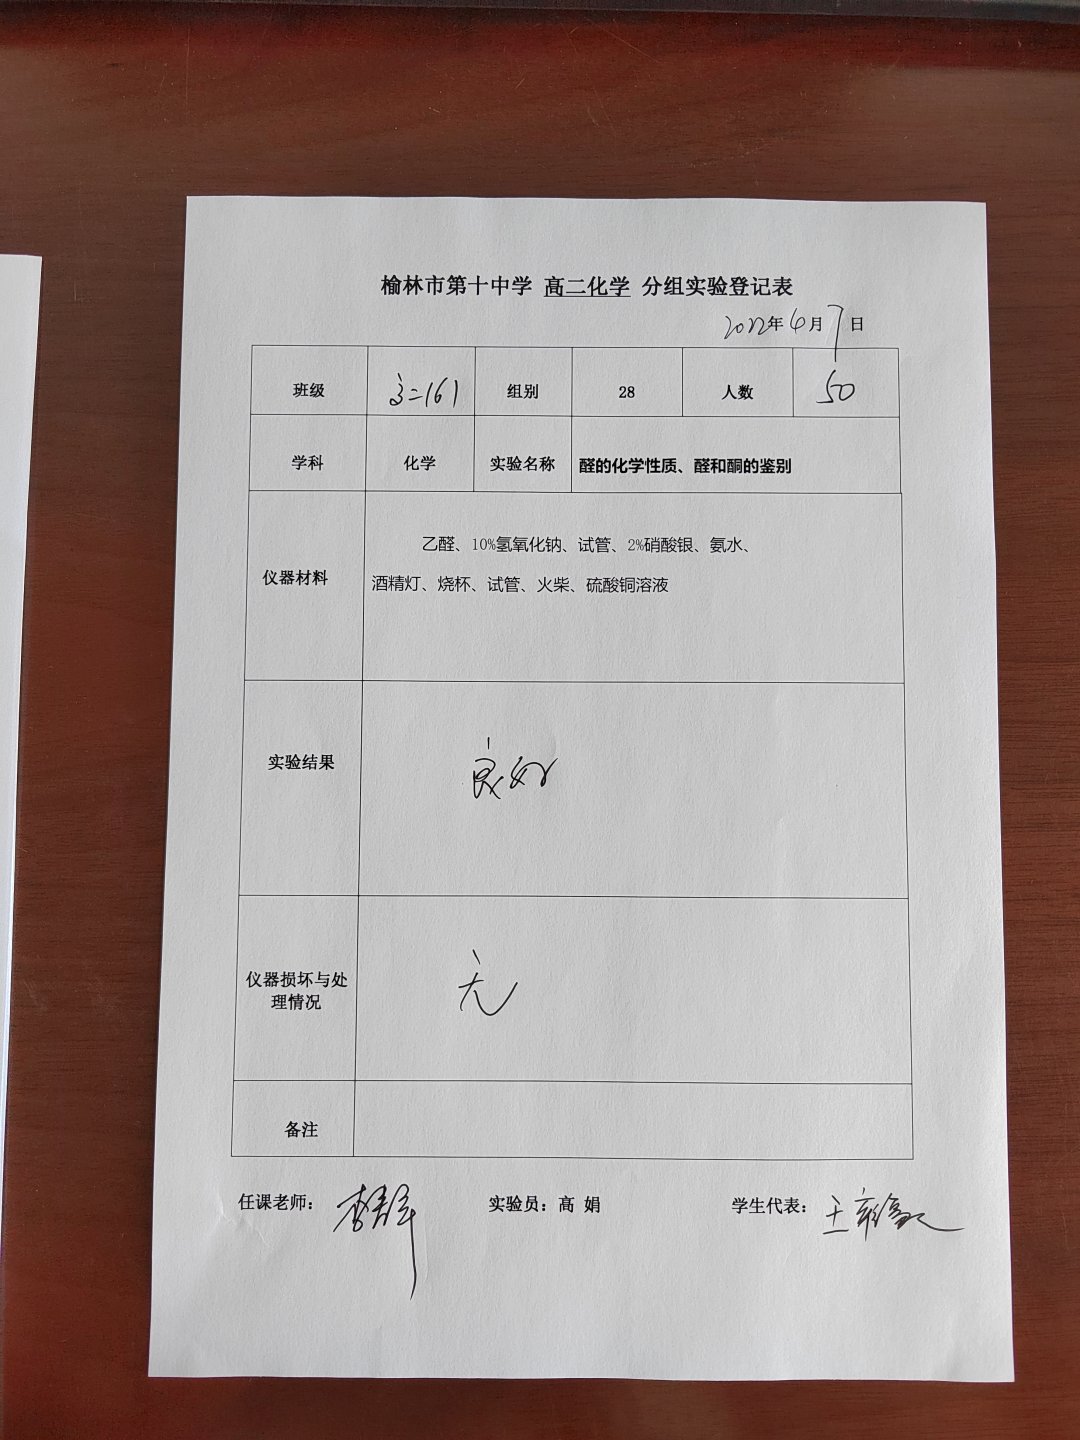 榆林市第十中学 高二化学 分组实验登记表
2022年6月7日
班级 高二161 组别 28 人数 50
学科 化学 实验名称 醛的化学性质、醛和酮的鉴别
仪器材料
乙醛、10%氢氧化钠、试管、2%硝酸银、氨水、
酒精灯、烧杯、试管、火柴、硫酸铜溶液
实验结果 良好
仪器损坏与处
理情况
无
备注
任课老师： 实验员：高 娟 学生代表：王